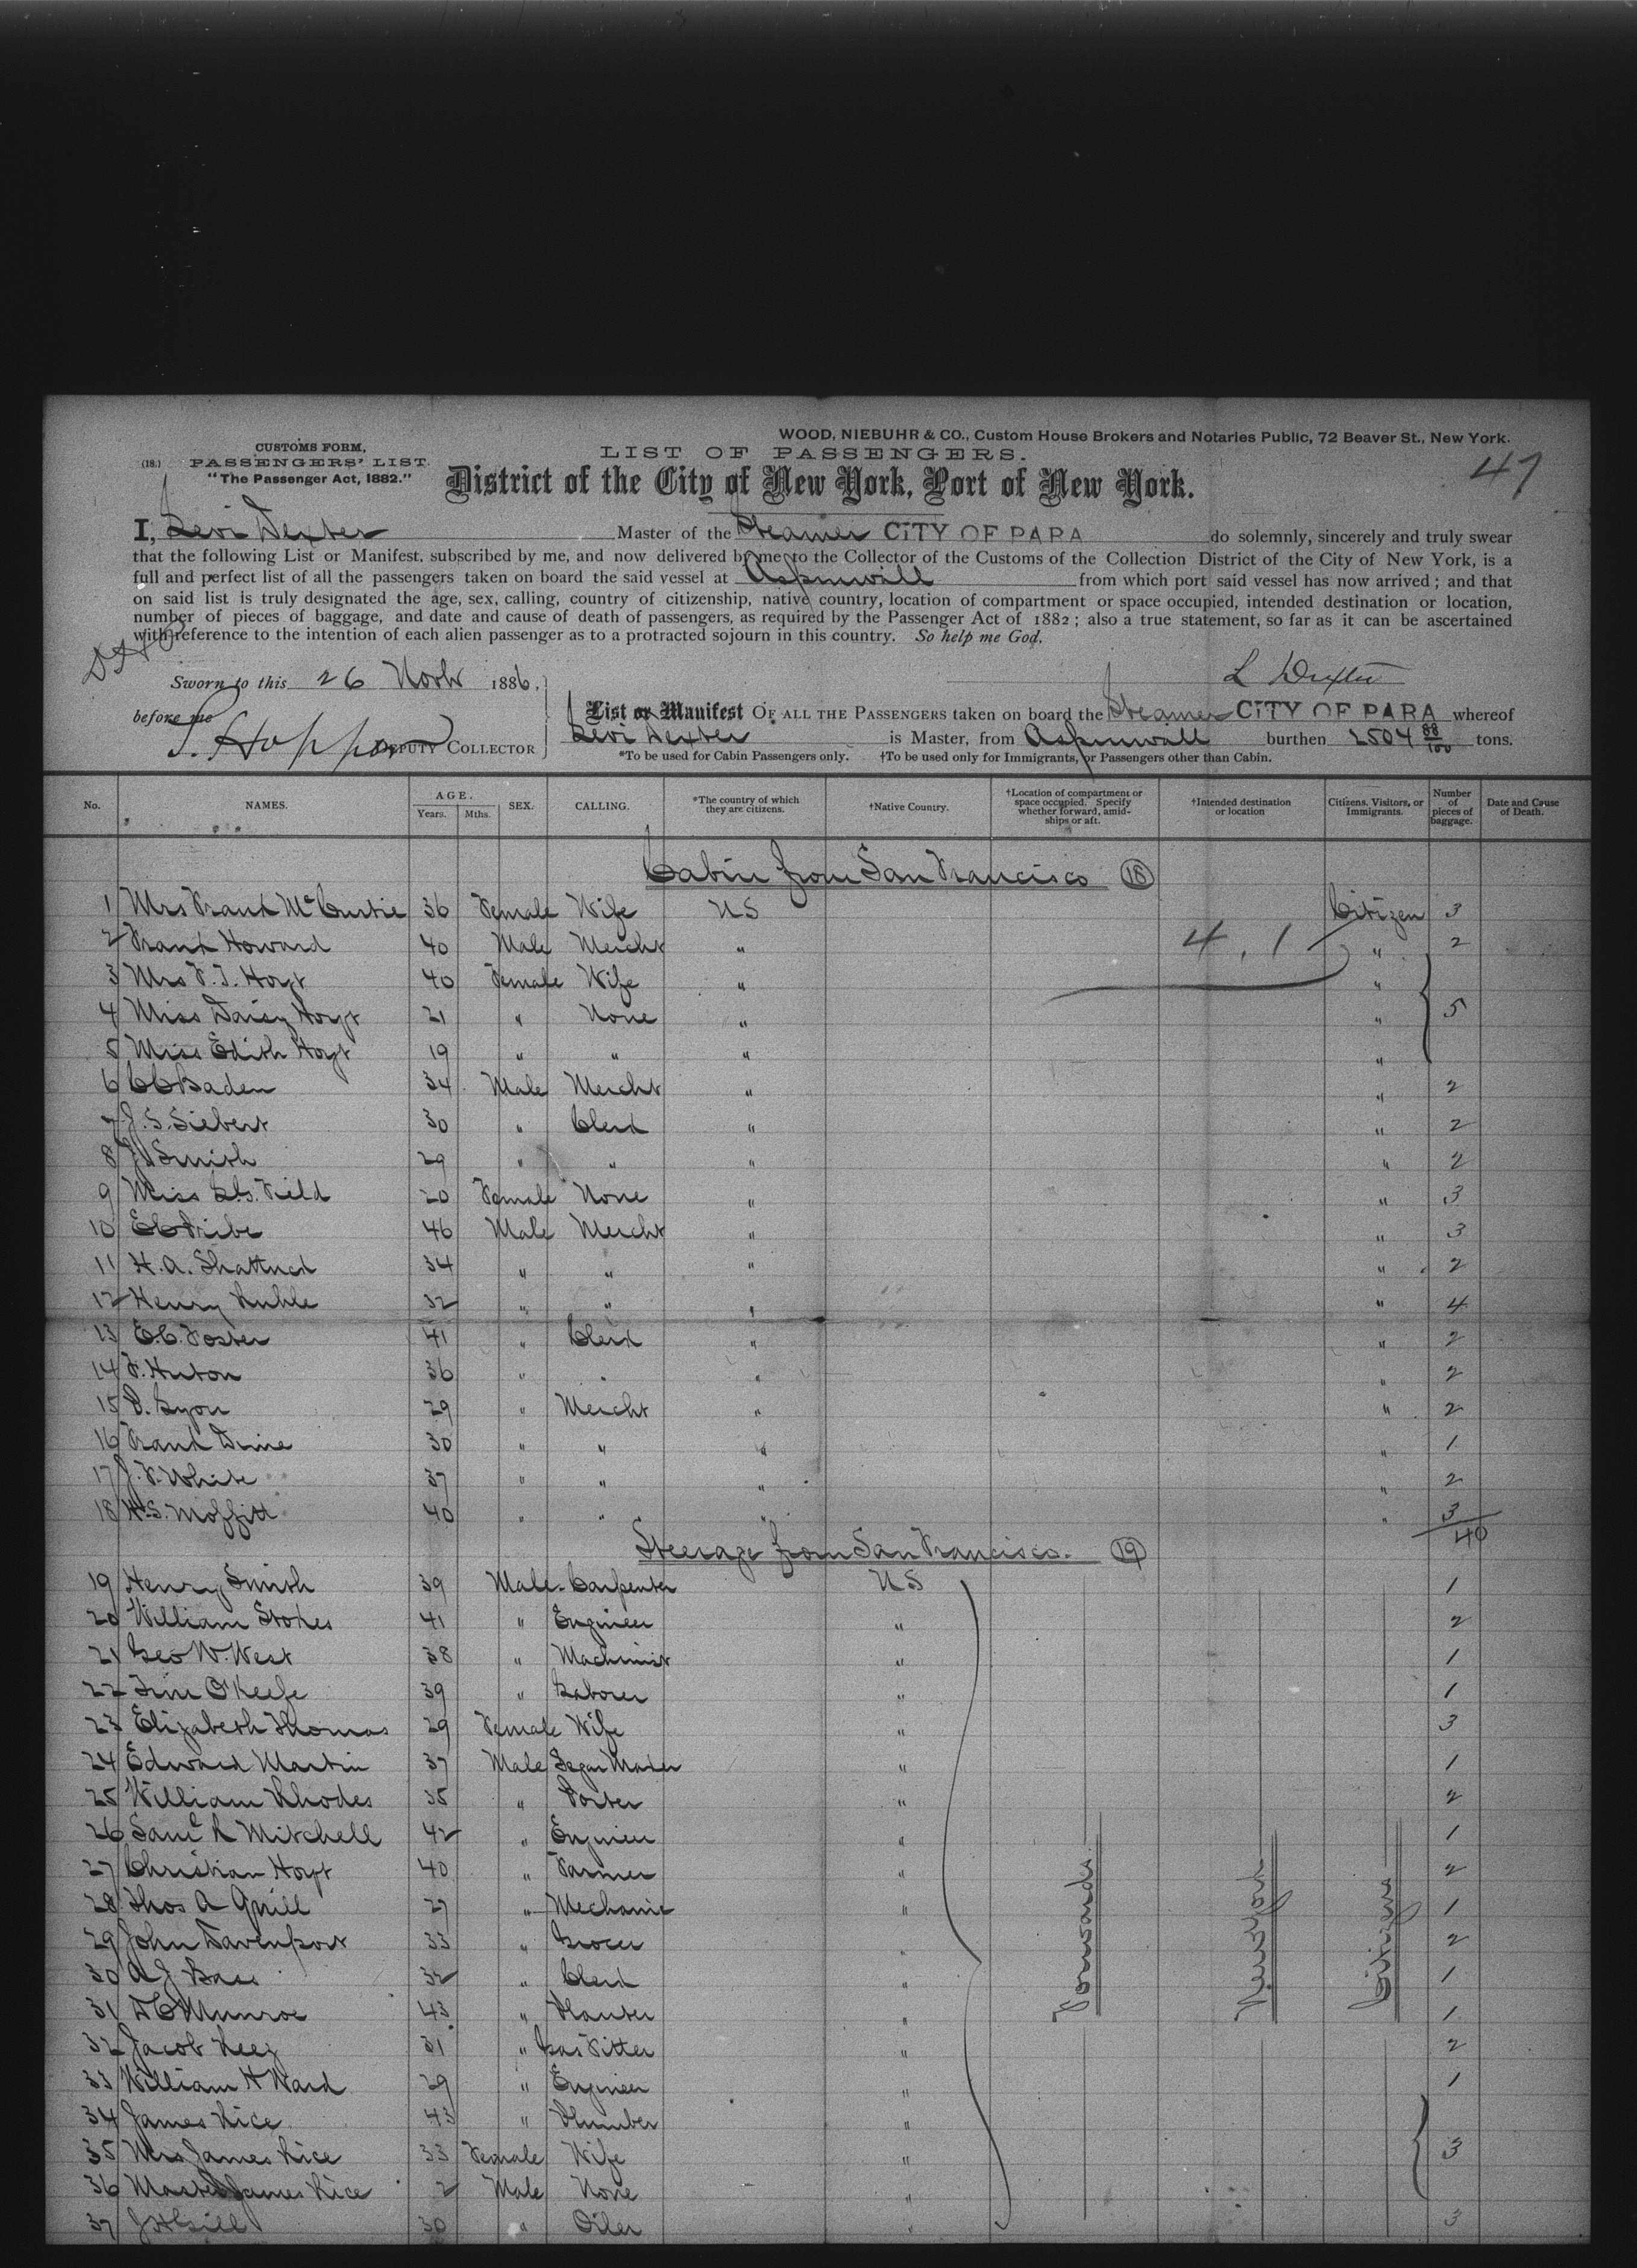 WOOD, NIEBUHR & CO., Custom House Brokers and Notaries Public, 72 Beaver St., New York.
CUSTOMS FORM,
(18.) PASSENGERS' LIST.
"The Passenger Act, 1882."
LIST OF PASSENGERS.
47
District of the City of New York, Port of New York.
I, Levi Dexter Master of the Steamer CITY OF PARA do solemnly, sincerely and truly swear
that the following List or Manifest, subscribed by me, and now delivered by me to the Collector of the Customs of the Collection District of the City of New York, is a
full and perfect list of all the passengers taken on board the said vessel at Aspinwall from which port said vessel has now arrived; and that
on said list is truly designated the age, sex, calling, country of citizenship, native country, location of compartment or space occupied, intended destination or location,
number of pieces of baggage, and date and cause of death of passengers, as required by the Passenger Act of 1882; also a true statement, so far as it can be ascertained
with reference to the intention of each alien passenger as to a protracted sojourn in this country. So help me God.
Sworn to this 26 Novbr 1886,
L Dexter
before me
DEPUTY COLLECTOR
List or Manifest OF ALL THE PASSENGERS taken on board the Steamer CITY OF PARA whereof
Levi Dexter is Master, from Aspinwall burthen 2504 88/100 tons.
*To be used for Cabin Passengers only. †To be used only for Immigrants, or Passengers other than Cabin.
No. NAMES. AGE. Years. Mths. SEX. CALLING. *The country of which they are citizens. †Native Country. †Location of compartment or space occupied. Specify whether forward, amidships or aft. †Intended destination or location Citizens, Visitors, or Immigrants. Number of pieces of baggage. Date and Cause of Death.
Cabin from San Francisco 18
1 Mrs Frank McCurtie 36 Female Wife US Citizen 3
2 Frank Howard 40 Male Mercht " 4,1 " 2
3 Mrs F. T. Hoyt 40 Female Wife " "
4 Miss Daisy Hoyt 21 " None " " 5
5 Miss Edith Hoyt 19 " " " "
6 CC Baden 34 Male Mercht " " 2
7 J. S. Siebert 30 " Clerk " " 2
8 J Smith 29 " " " " 2
9 Miss Field 20 Female None " " 3
10 46 Male Mercht " " 3
11 H. A. Shattuck 34 " " " " 2
12 Henry Kuhle 32 " " " " 4
13 E. C. Foster 41 " Clerk " " 2
14 F. Huton 36 " " " " 2
15 Lyon 29 " Mercht " " 2
16 Frank 30 " " " " 1
17 J. F. White 37 " " " " 2
18 Moffitt 40 " " " " 3
40
Steerage from San Francisco. 19
19 Henry Smith 39 Male Carpenter US 1
20 William Stokes 41 " Engineer " 2
21 Geo W. West 38 " Machinist " 1
22 Tim O'Keefe 39 " Laborer " 1
23 Elizabeth Thomas 29 Female Wife " 3
24 Edward Martin 37 Male Segar Maker " 1
25 William Rhodes 35 " Porter " 2
26 Saml R Mitchell 42 " Engineer " 1
27 Christian Hoyt 40 " Farmer " 2
28 Thos A Grill 27 " Mechanic " 1
29 John Davenport 33 " Grocer " 2
30 A J Bass 32 " Clerk " 1
31 D C Munroe 43 " Planter " 1
32 Jacob Keez 31 " Gas Fitter " 2
33 William H Ward 29 " Engineer " 1
34 James Rice 43 " Plumber "
35 Mrs James Rice 33 Female Wife " 3
36 Master James Rice 2 Male None "
37 J H Gill 30 " Oiler " 3
Forwards
New York
Citizens